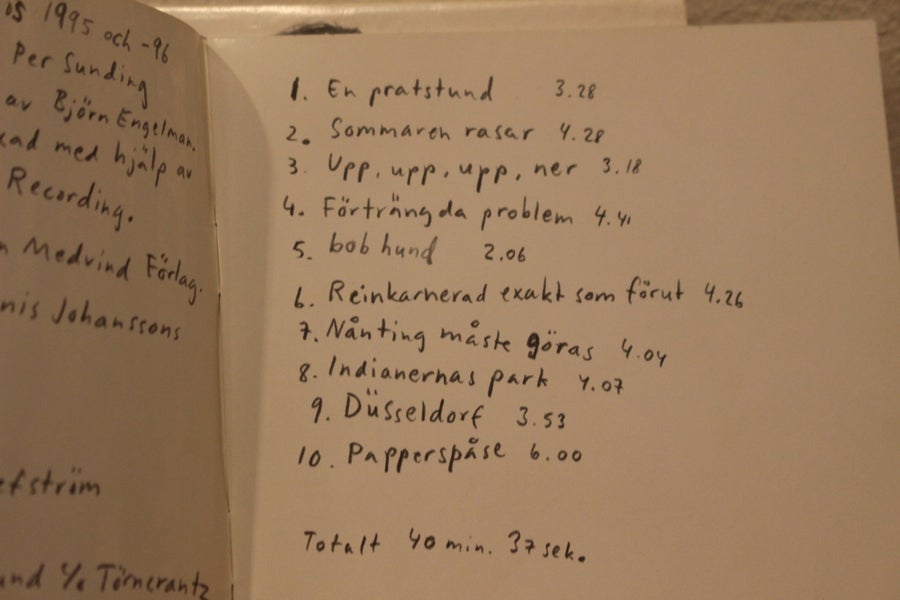 is 1995 och -96
Per Sunding
av Björn Engelman.
med hjälp av
Recording.
Medvind Förlag.
Johanssons
1. En pratstund 3.28
2. Sommaren rasar 4.28
3. Upp, upp, upp, ner 3.18
4. Förträngda problem 4.41
5. bob hund 2.06
6. Reinkarnerad exakt som förut 4.26
7. Nånting måste göras 4.04
8. Indianernas park 4.07
9. Düsseldorf 3.53
10. Papperspåse 6.00
Totalt 40 min. 37 sek.